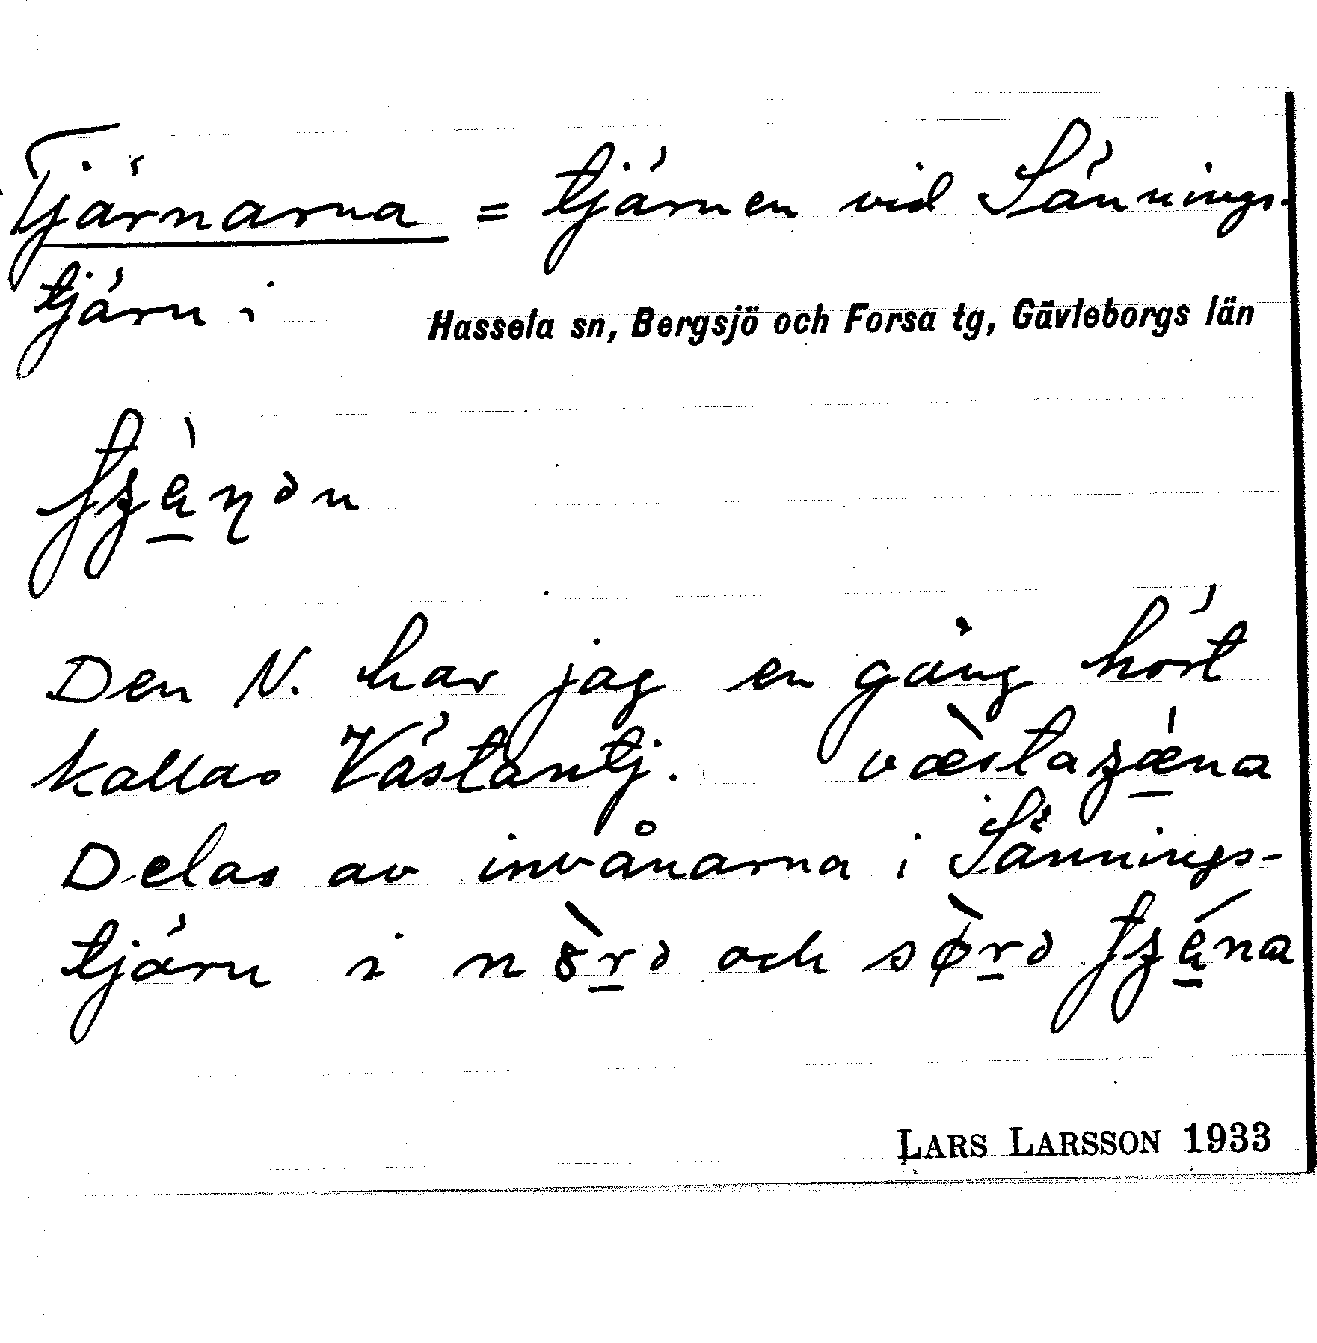 Tjärnarna = tjärnen vid Sännings-
tjärn i Hassela sn, Bergsjö och Forsa tg, Gävleborgs län
Den N. har jag en gång hört
kallas Västantj. væ̀stazǽna
Delas av invånarna i Sännings-
tjärn i och
LARS LARSSON 1933